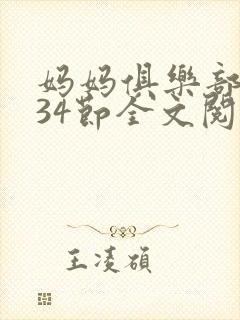 妈妈俱樂部
34節全文閱
王凌碩